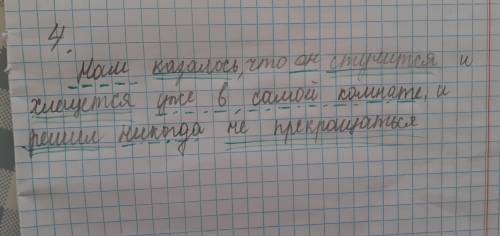 4.
Нам казалось, что он стучится и
хлещется уже в самой комнате, и
решил никогда не прекращаться